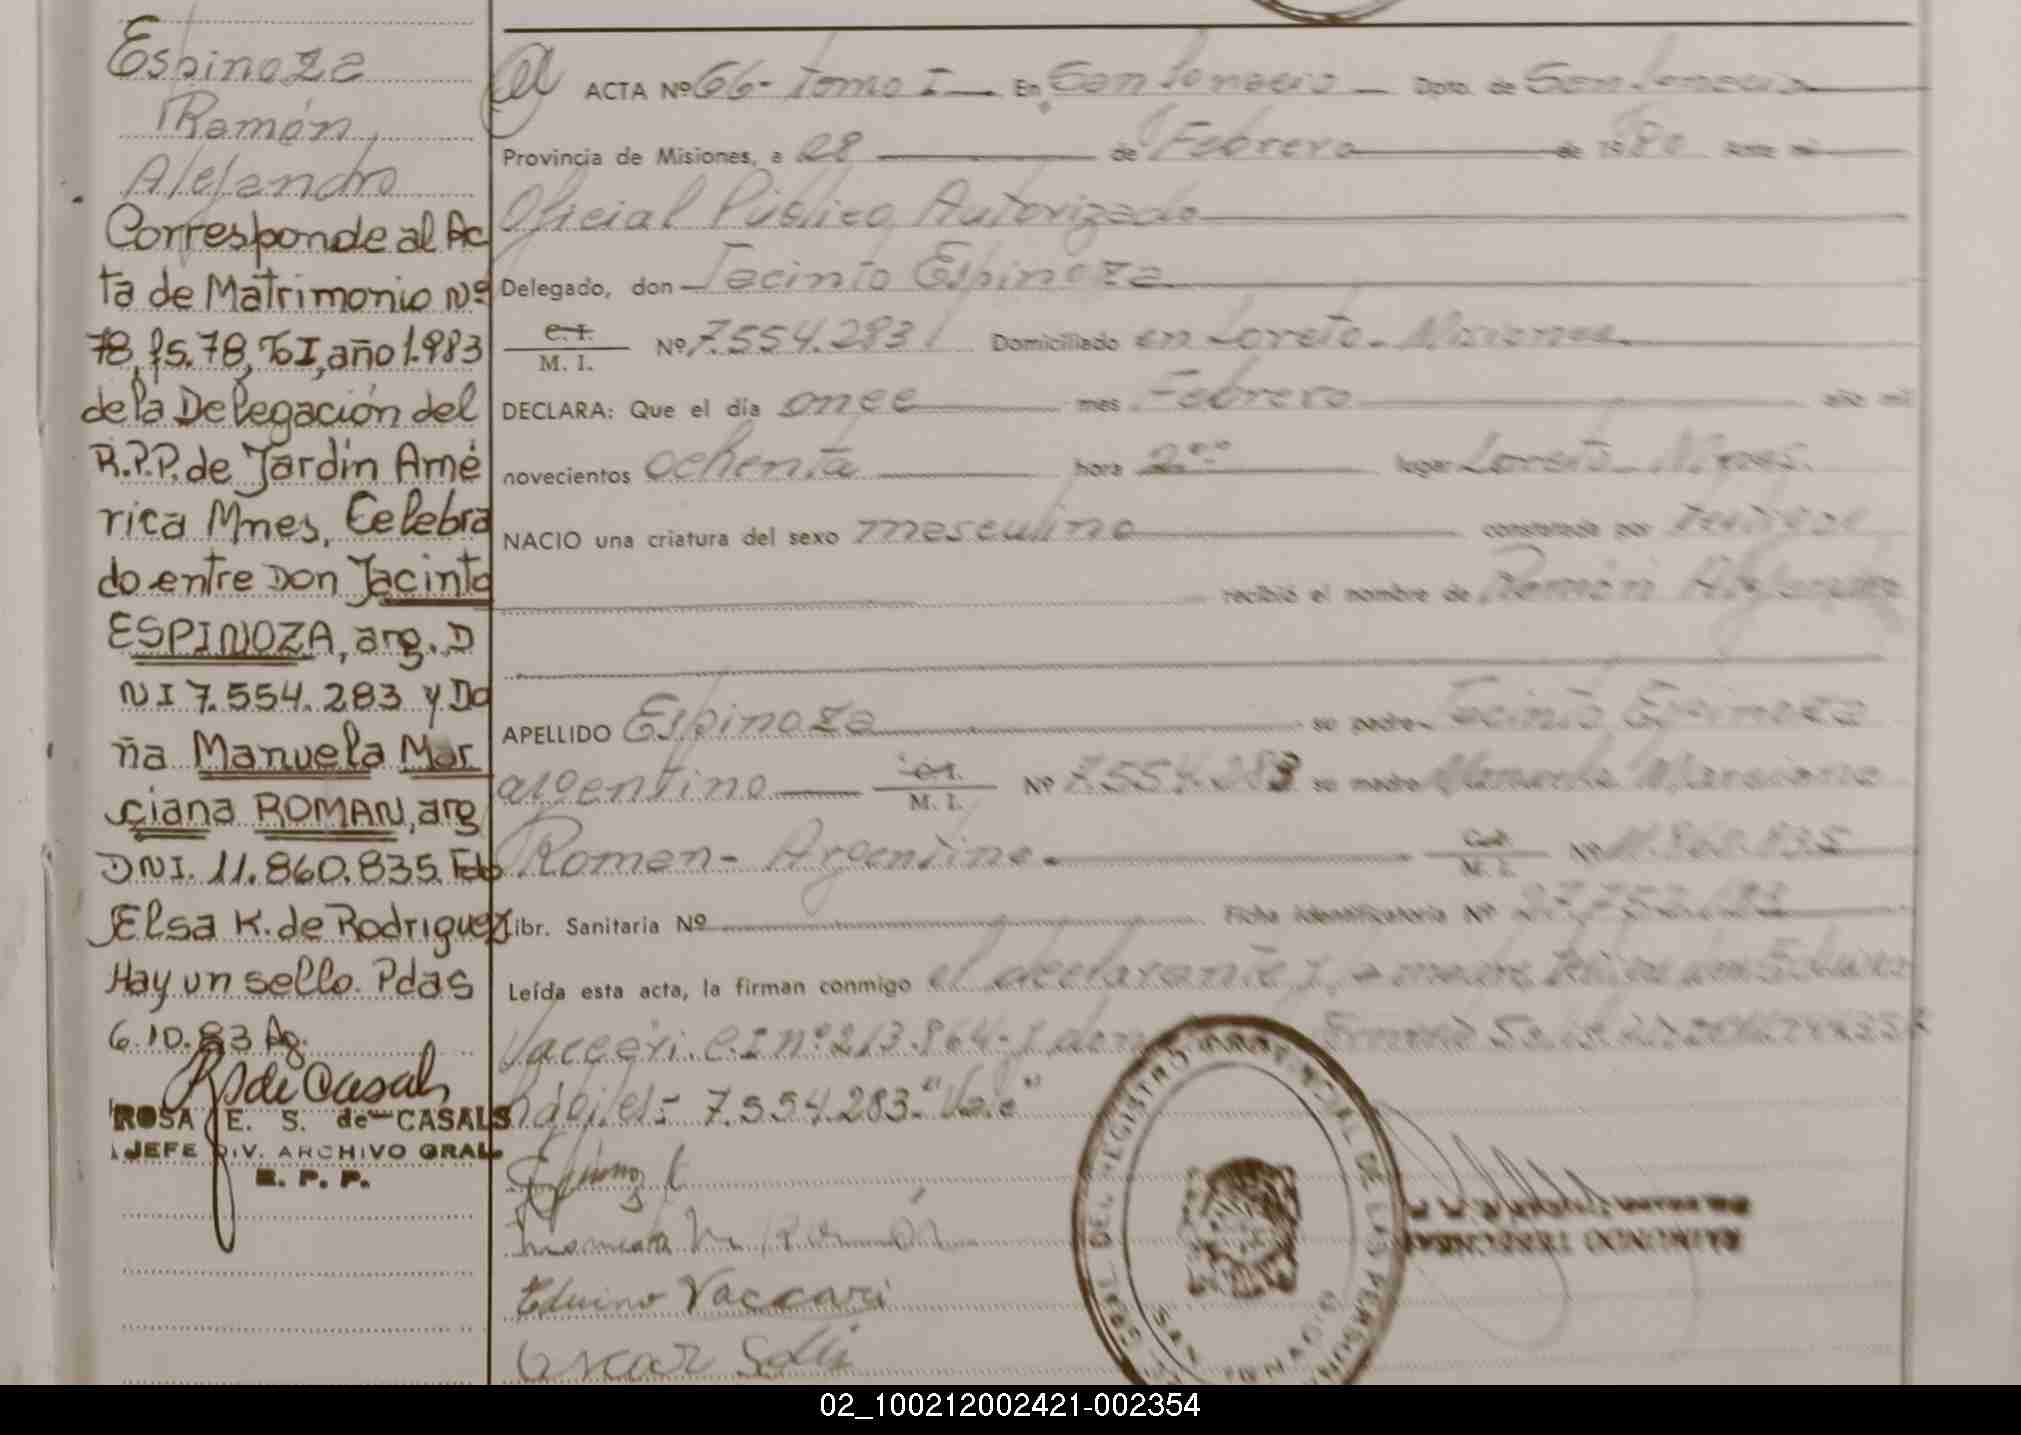 Espinoza
Ramón
Alejandro
Corresponde al Ac
ta de Matrimonio Nº
78, fs. 78, Tº I, año 1.983
de la Delegación del
R.P.P. de Jardin Amé
rica Mnes, Celebra
do entre Don Jacinto
ESPINOZA, arg. D
NI 7.554.283 y Do
ña Manuela Mar
ciana ROMAN, arg
DNI. 11.860.835. Fdo
Elsa K. de Rodriguez
Hay un sello. Pdas
6.10.83 Ag.
R S de Casals
ROSA E. S. de CASALS
JEFE DIV. ARCHIVO GRAL.
R. P. P.
ACTA Nº 66- Tomo I En San Ignacio Dpto. de San Ignacio
Provincia de Misiones, a 28 de Febrero de 1980 Ante mi
Oficial Público Autorizado
Delegado, don Jacinto Espinoza
C.I.
M. I. Nº 7.554.283 Domiciliado en Loreto - Misiones.
DECLARA: Que el día once mes Febrero año mil
novecientos ochenta hora 2.00 lugar Loreto Mnes.
NACIO una criatura del sexo masculino constatado por testigos
recibió el nombre de Ramón Alejandro
APELLIDO Espinoza su padre Jacinto Espinoza
argentino M. I. Nº 7.554.283 su madre Manuela Marciana
Roman - Argentina. M. I. Nº 11.860.835
Libr. Sanitaria Nº Ficha Identificatoria Nº 27.752.183
Leída esta acta, la firman conmigo el declarante y la madre
Vaccari. C.I nº 213.864-y
hábiles- 7.554.283. "Vale"
Espinoza J
Román
Eduino Vaccari
Oscar
DEL REGISTRO PROVINCIAL DE LAS PERSONAS
SAN IGNACIO
02_100212002421-002354